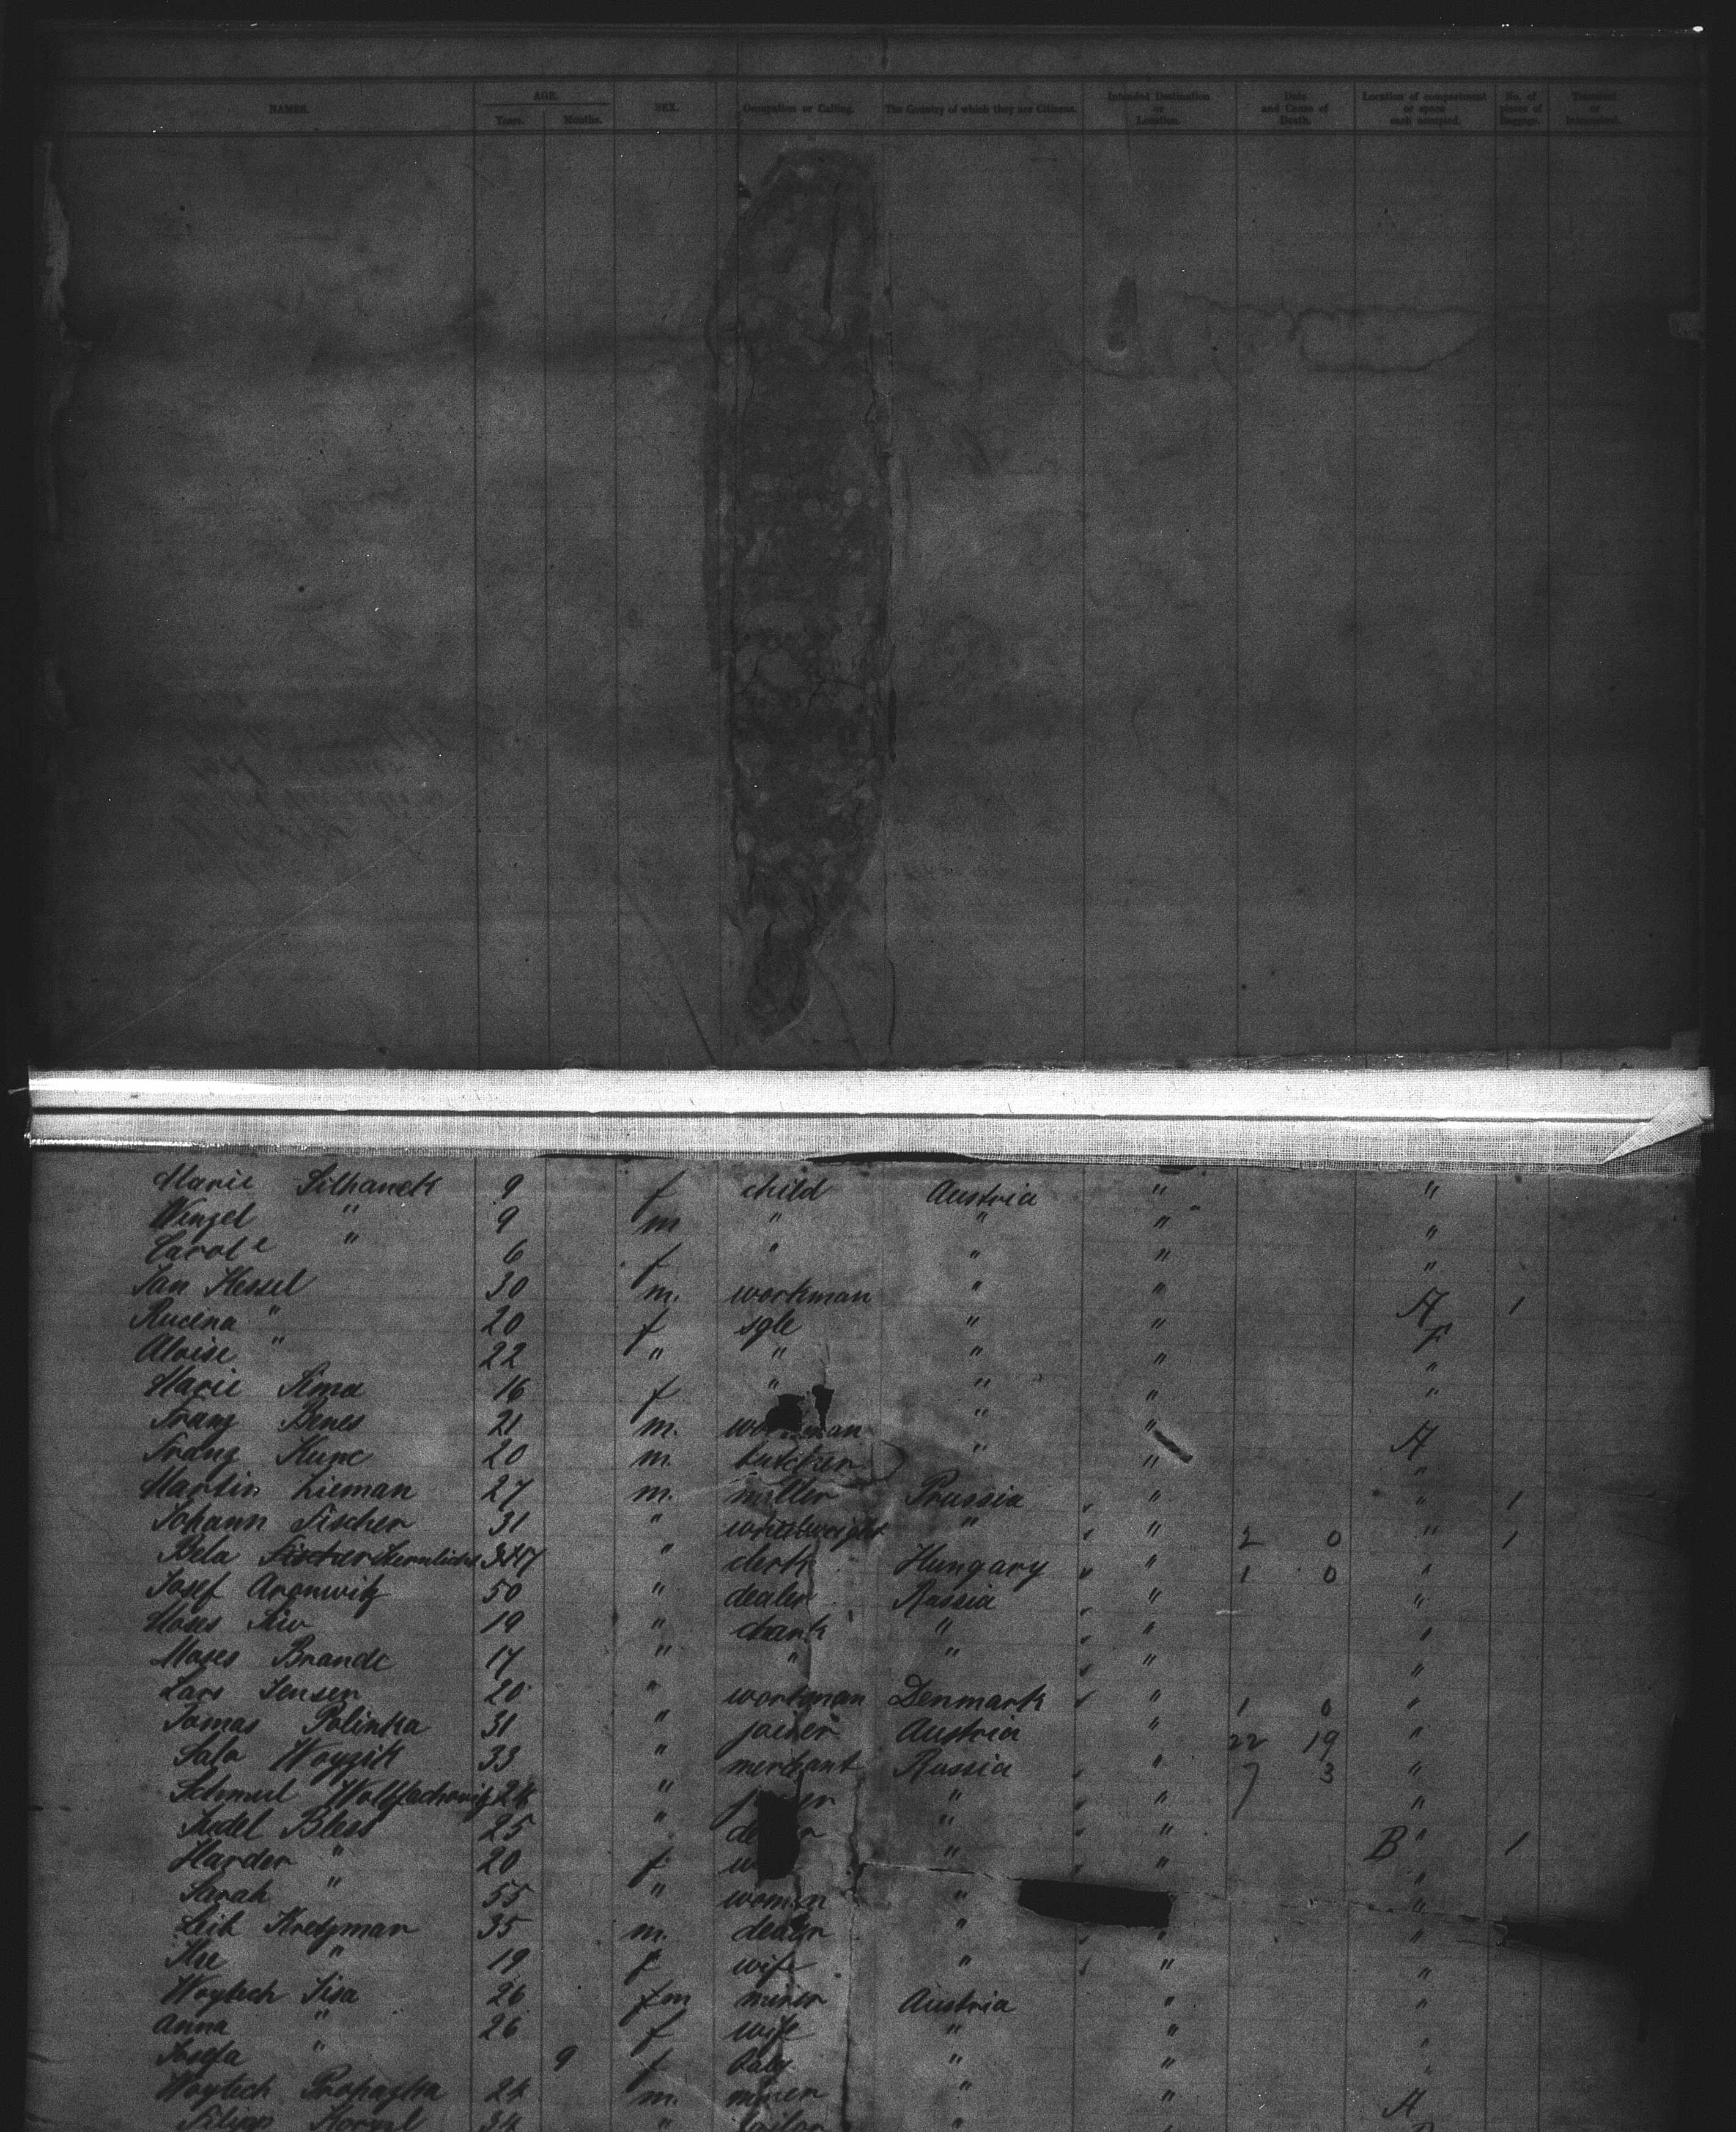 NAMES. AGE. Years. Months. SEX. Occupation or Calling. The Country of which they are Citizens. Intended Destination or Location. Date and Cause of Death. Location of compartment or space each occupied. No. of pieces of Baggage. Transient or
Marie Silhanek 9 f child Austria " "
Wenzel " 9 m " " " "
Carole " 6 f " " " "
Jan Hessel 30 m. workman " " A 1
Rucena " 20 f sgle " " F
Aloise " 22 " " " " "
Marie Sima 16 f " " " "
Franz Benes 21 m. workman " " A
Franz Kunc 20 m. butcher " " "
Martin Lieman 27 m. miller Prussia " " 1
Johann Fischer 31 " wheelwright " " 2 0 " 1
Bela Fischer " clerk Hungary " 1 0 "
Josef Aronwitz 50 " dealer Russia " "
Moses 19 " " " "
Moses Brande 17 " " " " "
Lars Jensen 20 " workman Denmark " 1 0 "
Tomas Polinka 31 " joiner Austria " 22 19 "
Sala Woyzik 33 " merchant Russia " 7 3 "
Schmul 24 " " " "
Judel Bless 25 " " " B " 1
Harder " 20 f " " "
Sarah " 55 " women " "
Leib Kretzman 35 m. dealer " " "
" 19 f wife " " "
Woytech Sisa 26 m miner Austria " "
Anna " 26 f wife " " "
Josefa " 9 f baby " " "
Woytech Prohazka 24 m. miner " " A
Filipp 34 " tailor "